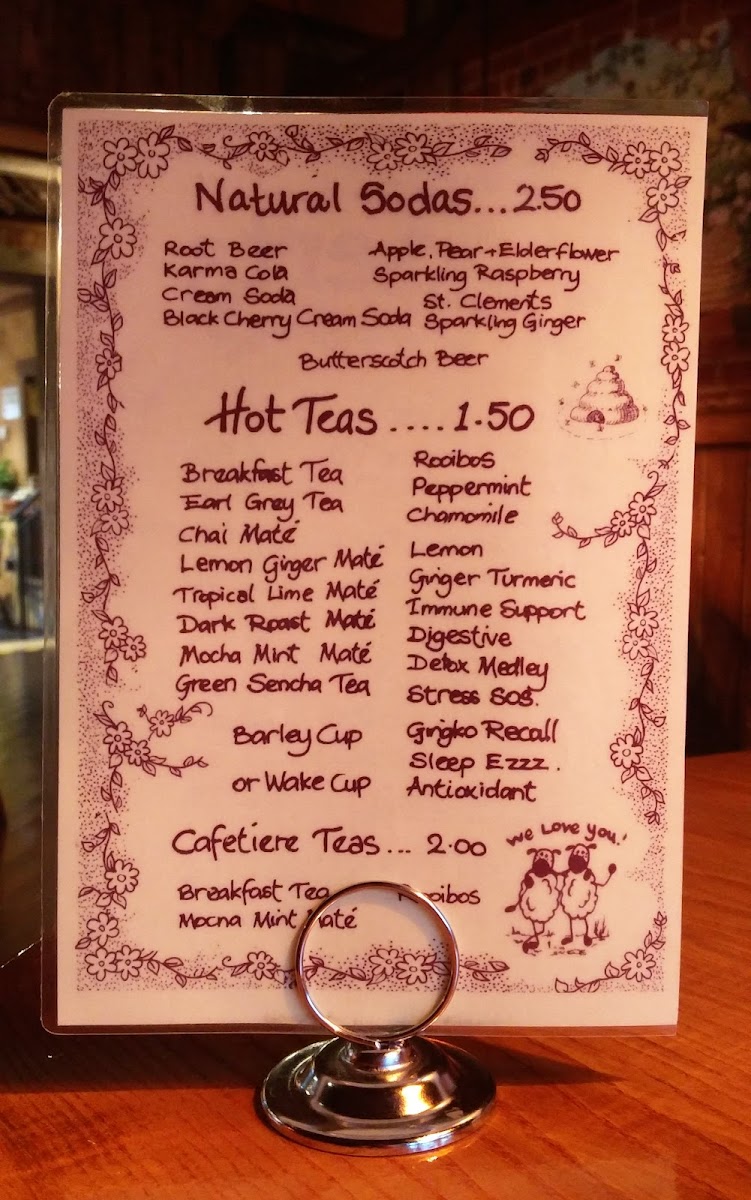 Natural Sodas...2.50
Root Beer
Karma Cola
Cream Soda
Black Cherry Cream Soda
Apple, Pear + Elderflower
Sparkling Raspberry
St. Clements
Sparkling Ginger
Butterscotch Beer
Hot Teas ....1.50
Breakfast Tea
Earl Grey Tea
Chai Maté
Lemon Ginger Maté
Tropical Lime Maté
Dark Roast Maté
Mocha Mint Maté
Green Sencha Tea
Barley Cup
or Wake Cup
Rooibos
Peppermint
Chamomile
Lemon
Ginger Turmeric
Immune Support
Digestive
Detox Medley
Stress SOS.
Gingko Recall
Sleep Ezzz.
Antioxidant
Cafetiere Teas... 2.00
Breakfast Tea
Mocha Mint Maté
Rooibos
We Love You!